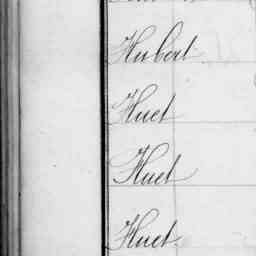 Hubert
Huet
Huet
Huet